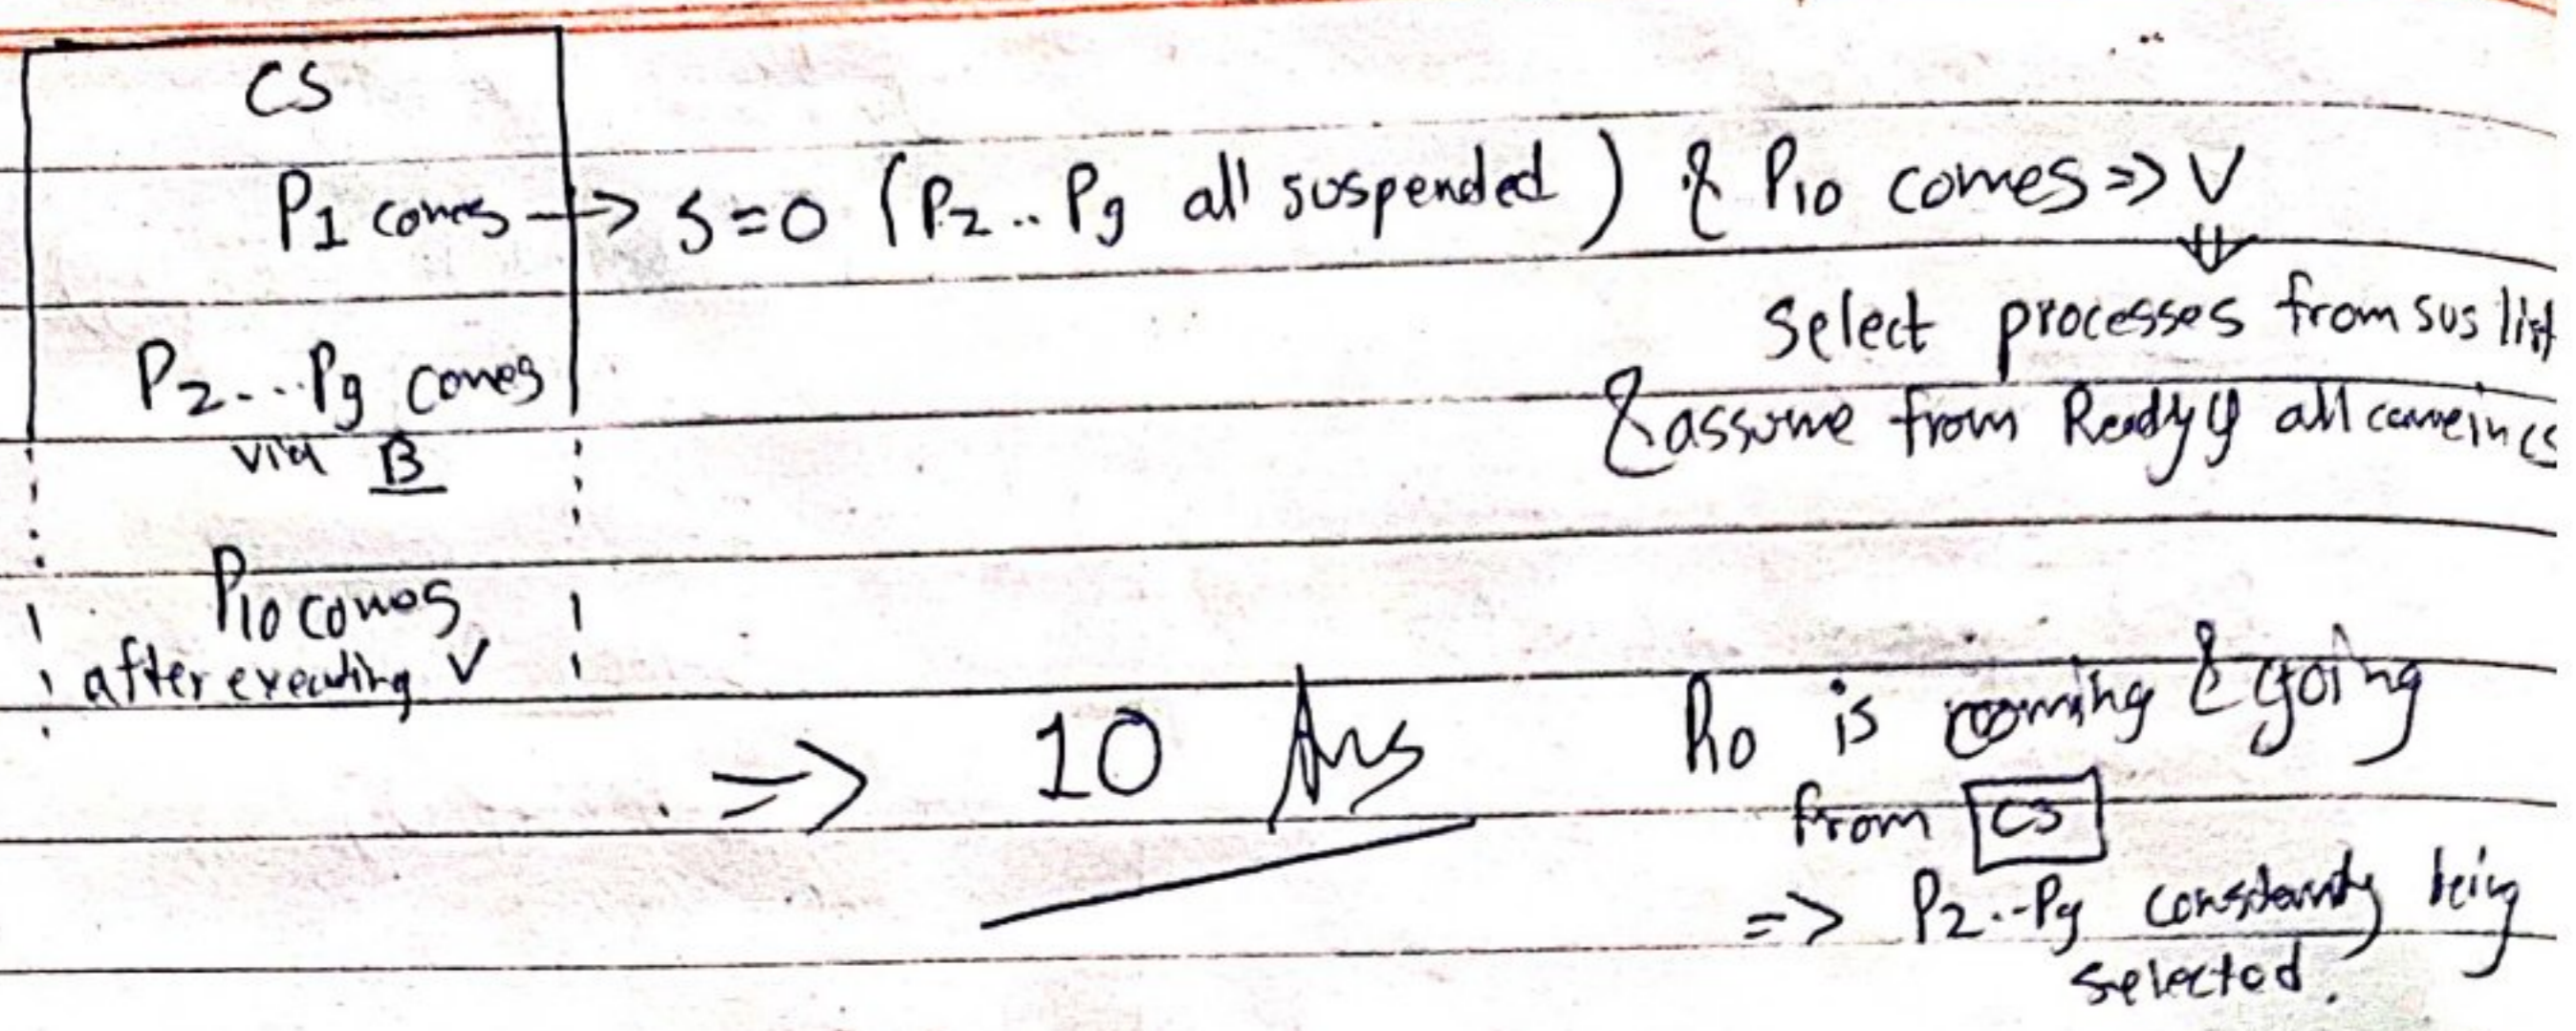 CS
P1 comes → S=0 (P2..P9 all suspended) & P10 comes => V
⇓
Select processes from sus list
P2...P9 comes
& assume from Ready Q all came in CS
via B
P10 comes
after executing V
=> 10 Ans
P10 is coming & going
from CS
=> P2..P9 constantly being
selected.